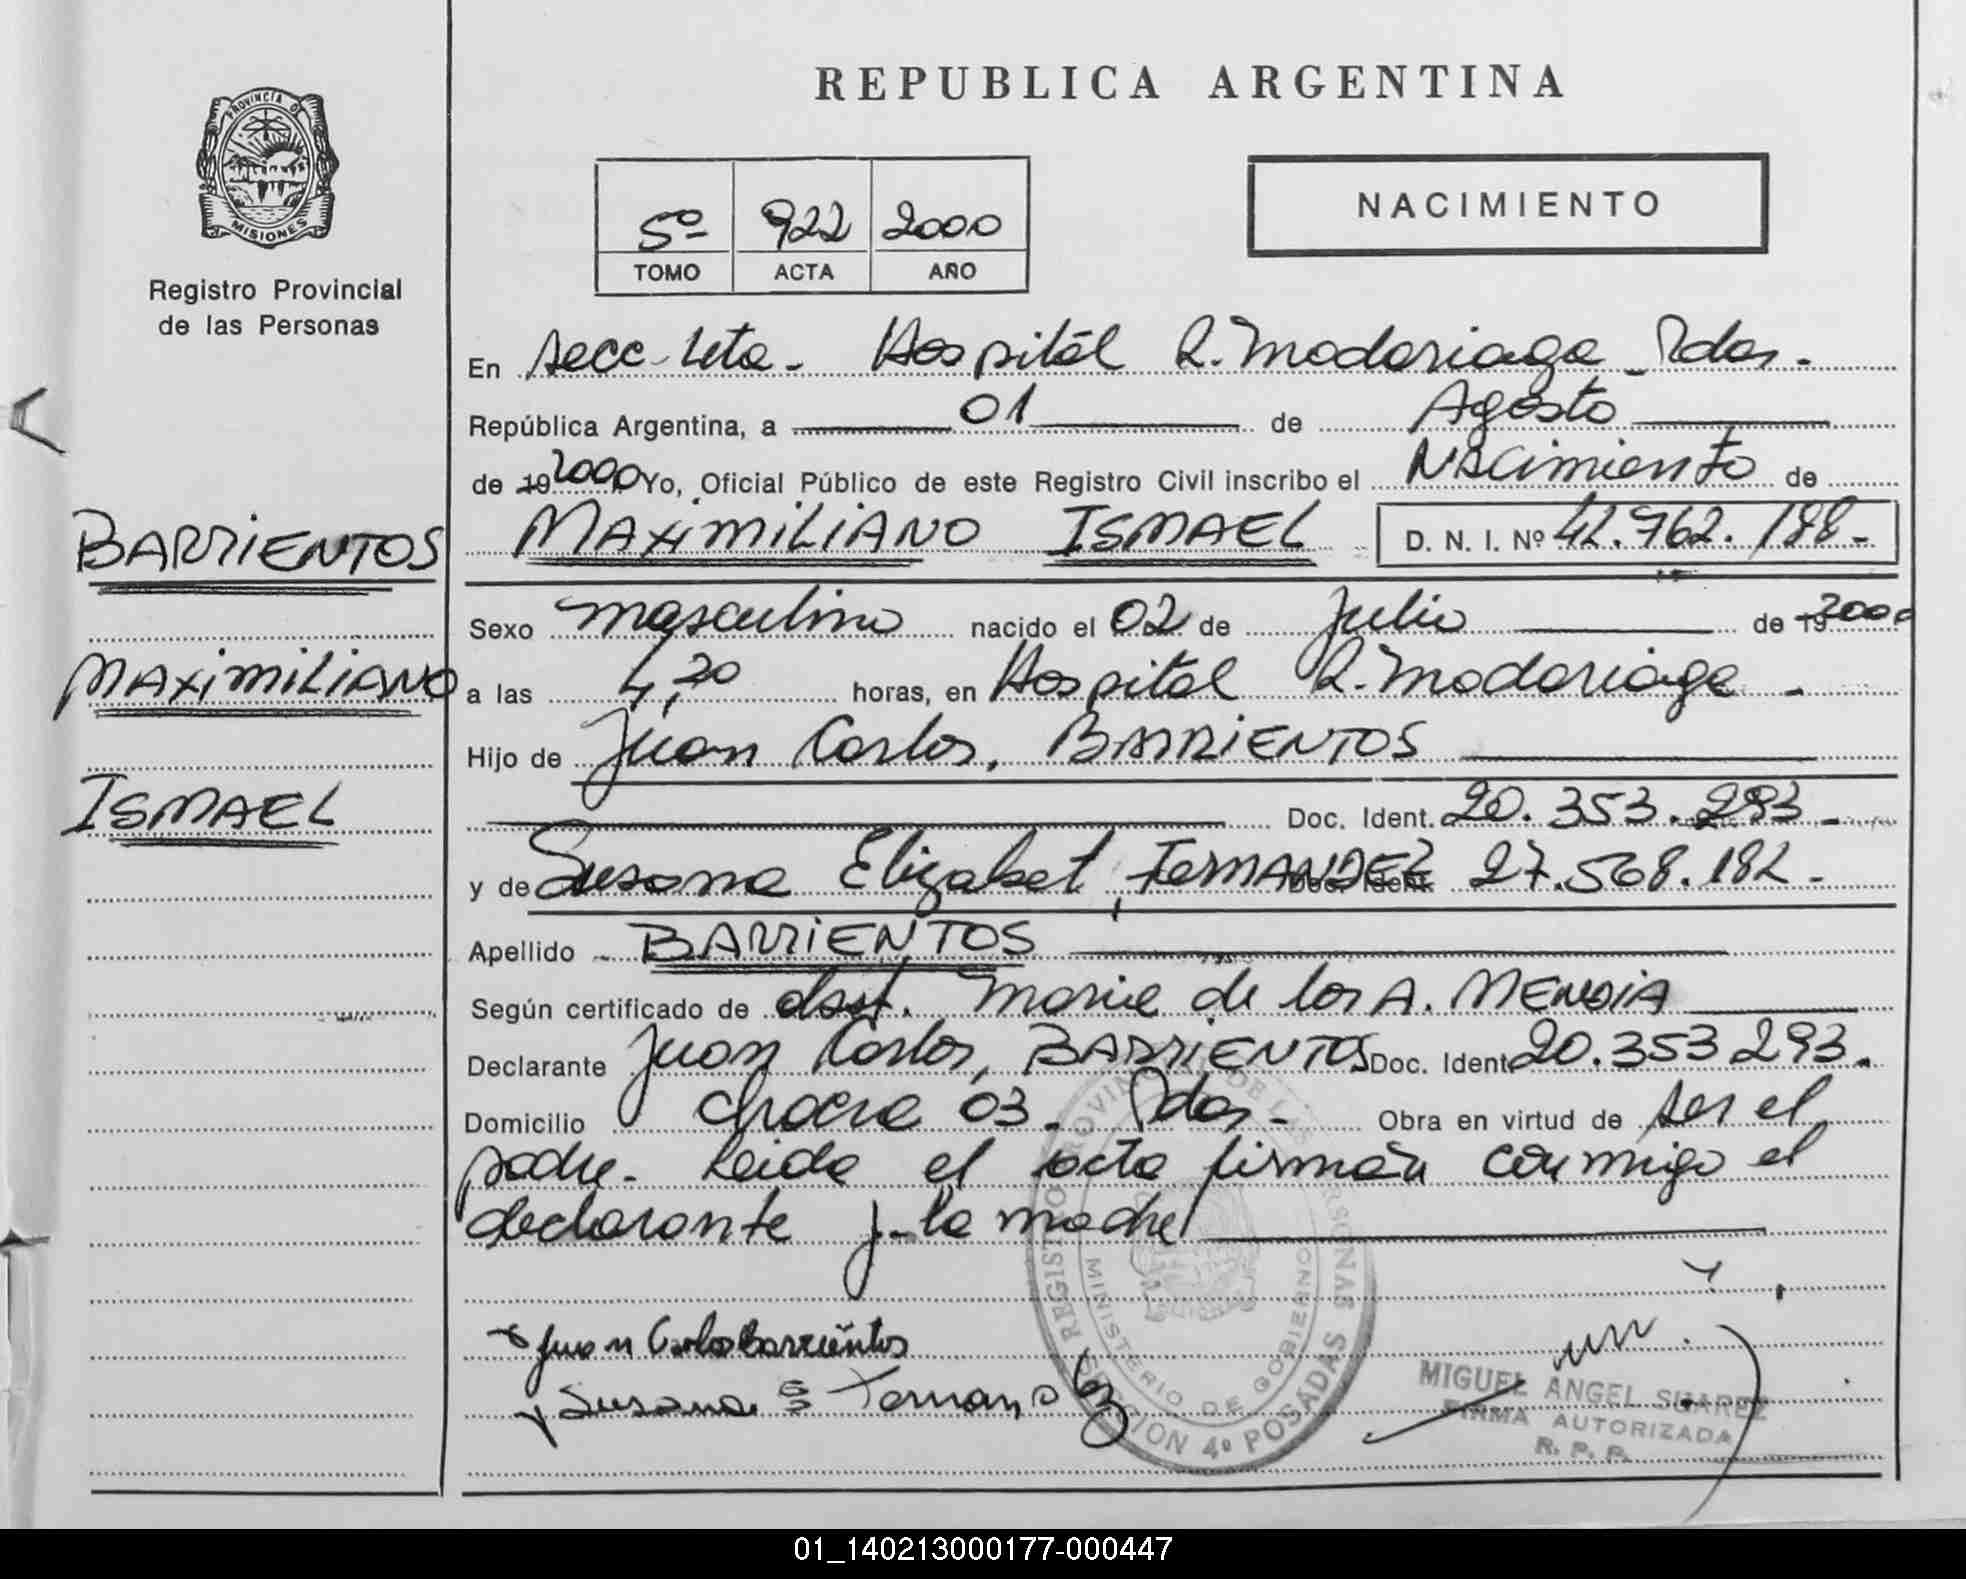 REPUBLICA ARGENTINA
PROVINCIA DE
MISIONES
Registro Provincial
de las Personas
5º 922 2000
TOMO ACTA AÑO
NACIMIENTO
En Secc. 4ta. Hospital R. Madariaga - Pdas.
República Argentina, a 01 de Agosto
de 19 2000 Yo, Oficial Público de este Registro Civil inscribo el Nacimiento de
MAXIMILIANO ISMAEL D. N. I. Nº 42.762.188.-
BARRIENTOS
MAXIMILIANO
ISMAEL
Sexo masculino nacido el 02 de Julio de 19 2000
a las 4,20 horas, en Hospital R. Madariaga -
Hijo de Juan Carlos, BARRIENTOS
Doc. Ident. 20.353.293.-
y de Susana Elizabet, FERNANDEZ Doc. Ident. 27.568.182.-
Apellido BARRIENTOS
Según certificado de obst. Maria de los A. MENDIA
Declarante Juan Carlos, BARRIENTOS Doc. Ident. 20.353.293.-
Domicilio chacra 03 - Pdas - Obra en virtud de ser el
padre. Leida el acta firman conmigo el
declarante y la madre
Juan Carlos Barrientos
Susana E Fernandez
REGISTRO PROVINCIAL DE LAS PERSONAS
MINISTERIO DE GOBIERNO
SECCION 4º POSADAS
MIGUEL ANGEL SUAREZ
FIRMA AUTORIZADA
R. P. P.
01_140213000177-000447